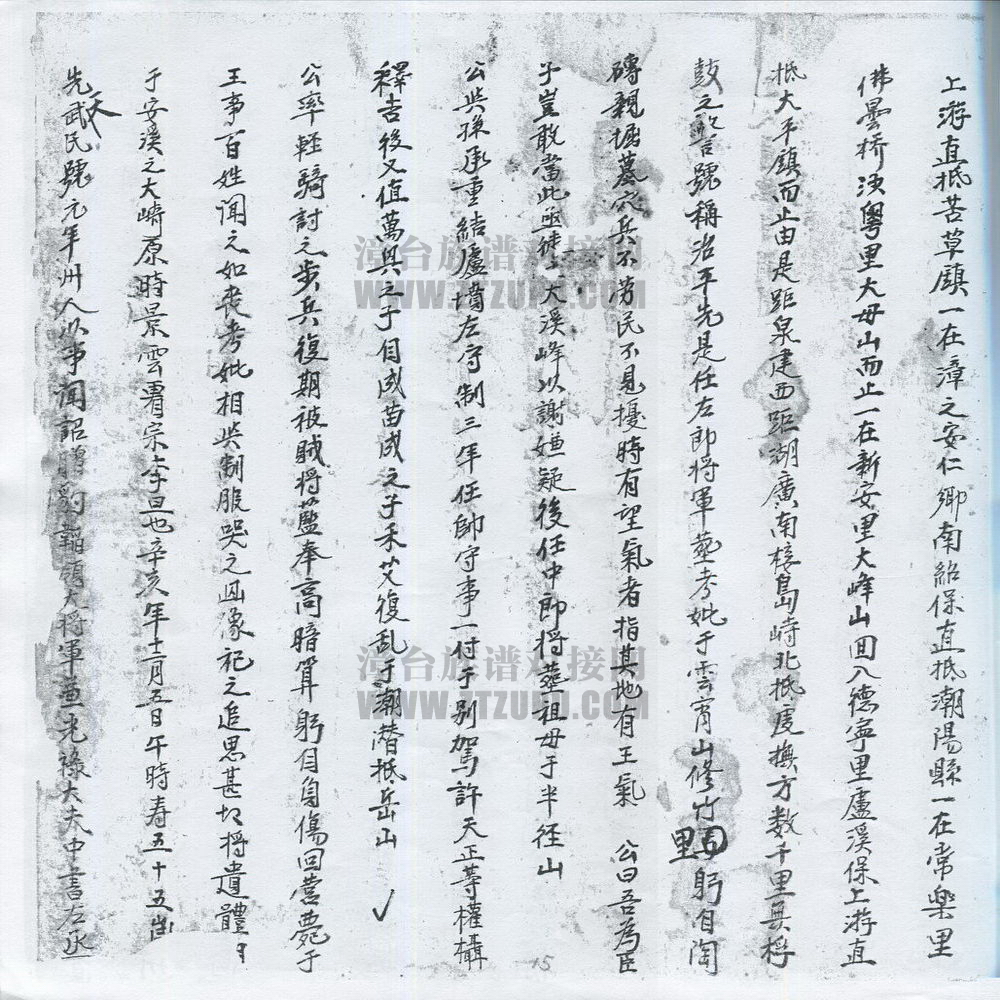 上游直抵苦草鎮一在漳之安仁鄉南紹保直抵潮陽縣一在常樂里
佛曇桥汝粤里大母山而止一在新安里大峰山回入德寧里盧溪保上游直
抵大平鎮而止由是距泉建西距湖廣南接島峙北抵虔撫方数千里無桴
鼓之警號稱治平先是任左郎將軍葬考妣于雲霄山修竹里躬自陶
磚親堀墓穴兵不勞民不見擾時有望氣者指其地有王氣 公曰吾為臣
子豈敢當此亟徙大溪峰以謝嫌疑後任中郎将葬祖母于半径山
公與孫承重結廬墳左守制三年任帥守事一付于别駕許天正等權攝
釋吉後又值萬興之子自成苗成之子禾艾復乱于潮潜抵岳山
公率軽騎討之步兵復期被贼將藍奉高暗算躬自身傷回营薨于
王事百姓闻之如丧考妣相與制服哭之凹像祀之追思甚切將遺體
于安溪之大崎原時景雲睿宗李旦也辛亥年十二月五日午時寿五十五歲
先天武氏號元年洲人以事闻詔贈豹韜衛大将軍兼光祿大夫中書左丞
15
漳台族谱对接网
WWW.ZTZUPU.COM
漳台族谱对接网
WWW.ZTZUPU.COM